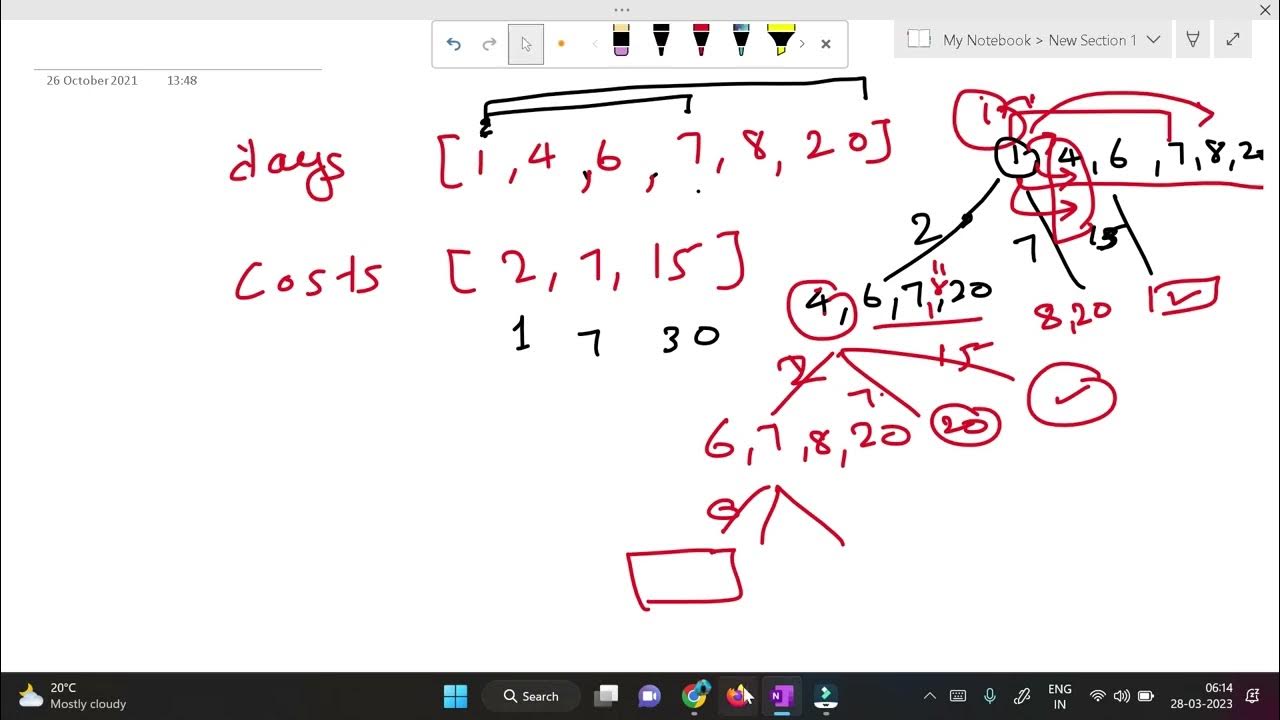 My Notebook > New Section 1
26 October 2021 13:48
days [1, 4, 6, 7, 8, 20]
1 4, 6, 7, 8, 2
Costs [2, 7, 15]
1 7 30
2 7 15
4, 6, 7, 8, 20
8, 20
2 7 15
6, 7, 8, 20
20
20°C
Mostly cloudy
Search
ENG
IN
06:14
28-03-2023